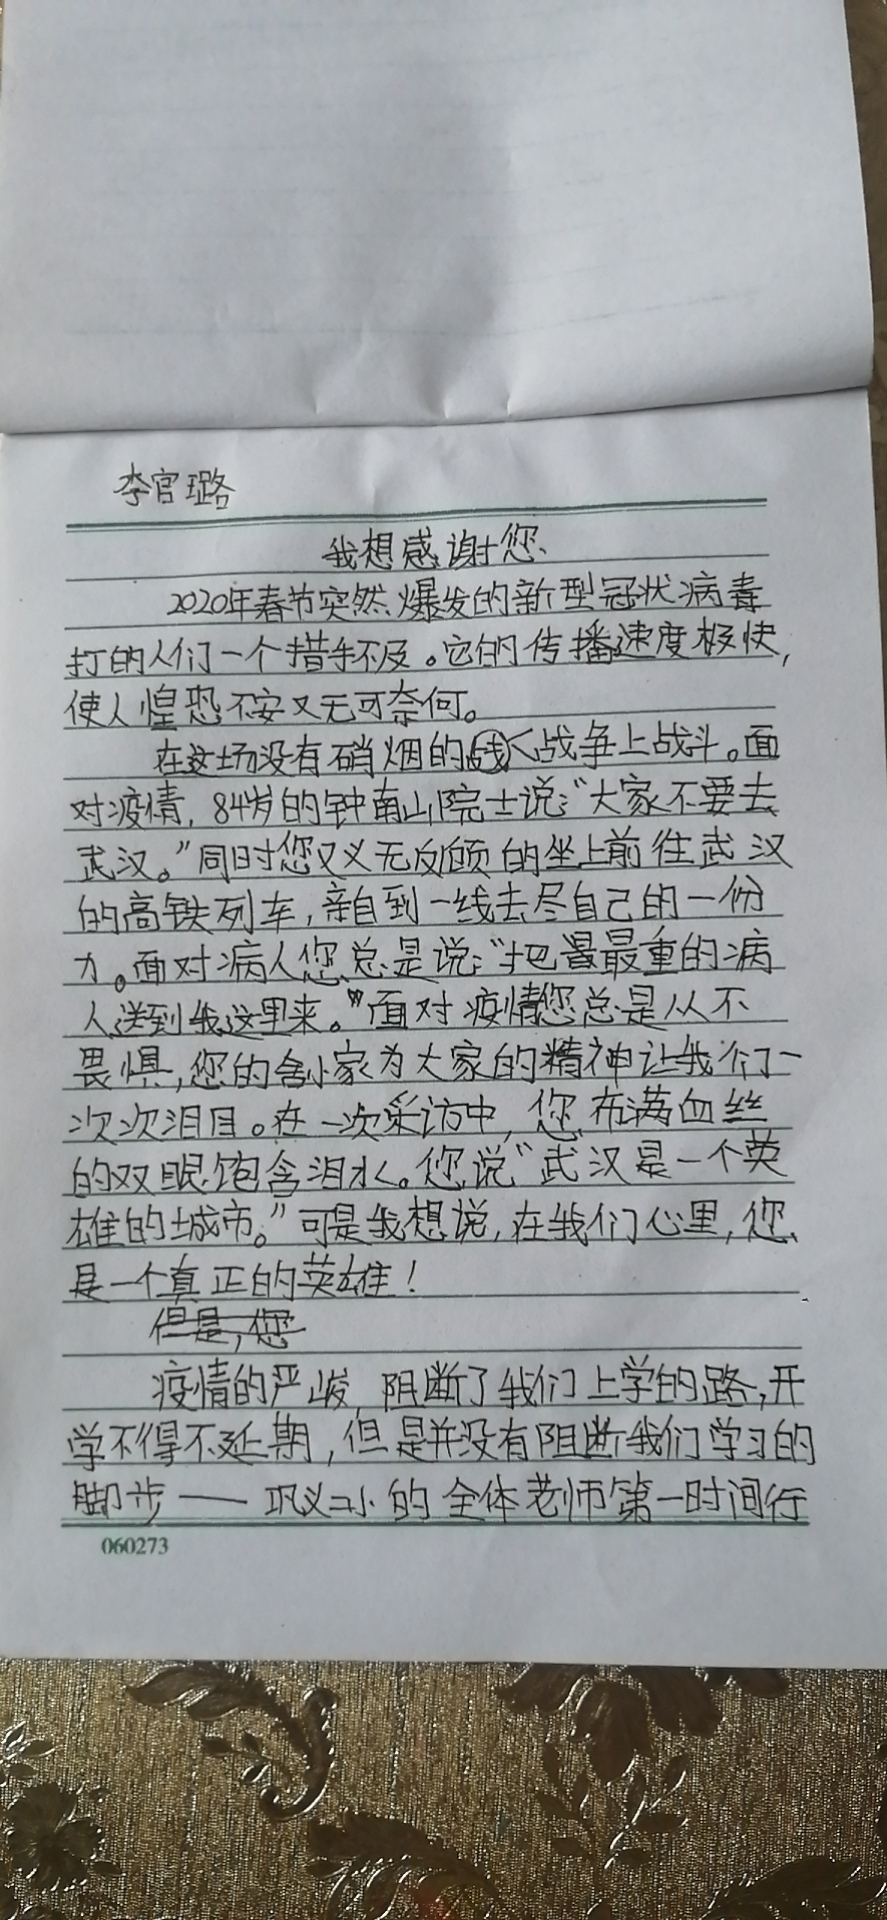 李官璐
我想感谢您
2020年春节突然爆发的新型冠状病毒
打的人们一个措手不及。它的传播速度极快，
使人惶恐不安又无可奈何。
在这场没有硝烟的战争上战斗。面
对疫情，84岁的钟南山院士说：“大家不要去
武汉。”同时您又义无反顾的坐上前往武汉
的高铁列车，亲自到一线去尽自己的一份
力。面对病人您总是说：“把最重的病
人送到我这里来。”面对疫情您总是从不
畏惧，您的舍小家为大家的精神让我们一
次次泪目。在一次采访中，您布满血丝
的双眼饱含泪水。您说“武汉是一个英
雄的城市。”可是我想说，在我们心里，您
是一个真正的英雄！
但是，您
疫情的严峻，阻断了我们上学的路，开
学不得不延期，但是并没有阻断我们学习的
脚步——巩义二小的全体老师第一时间行
060273